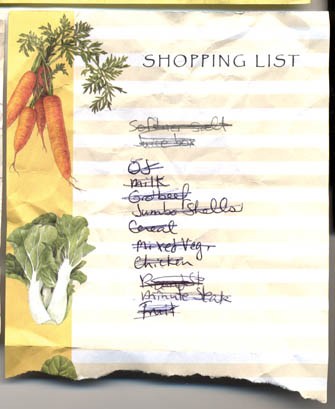 SHOPPING LIST
Softner salt
juice box
OJ
milk
Grd beef
Jumbo Shells
Cereal
Mixed Veg.
Chicken
minute Steak
Fruit